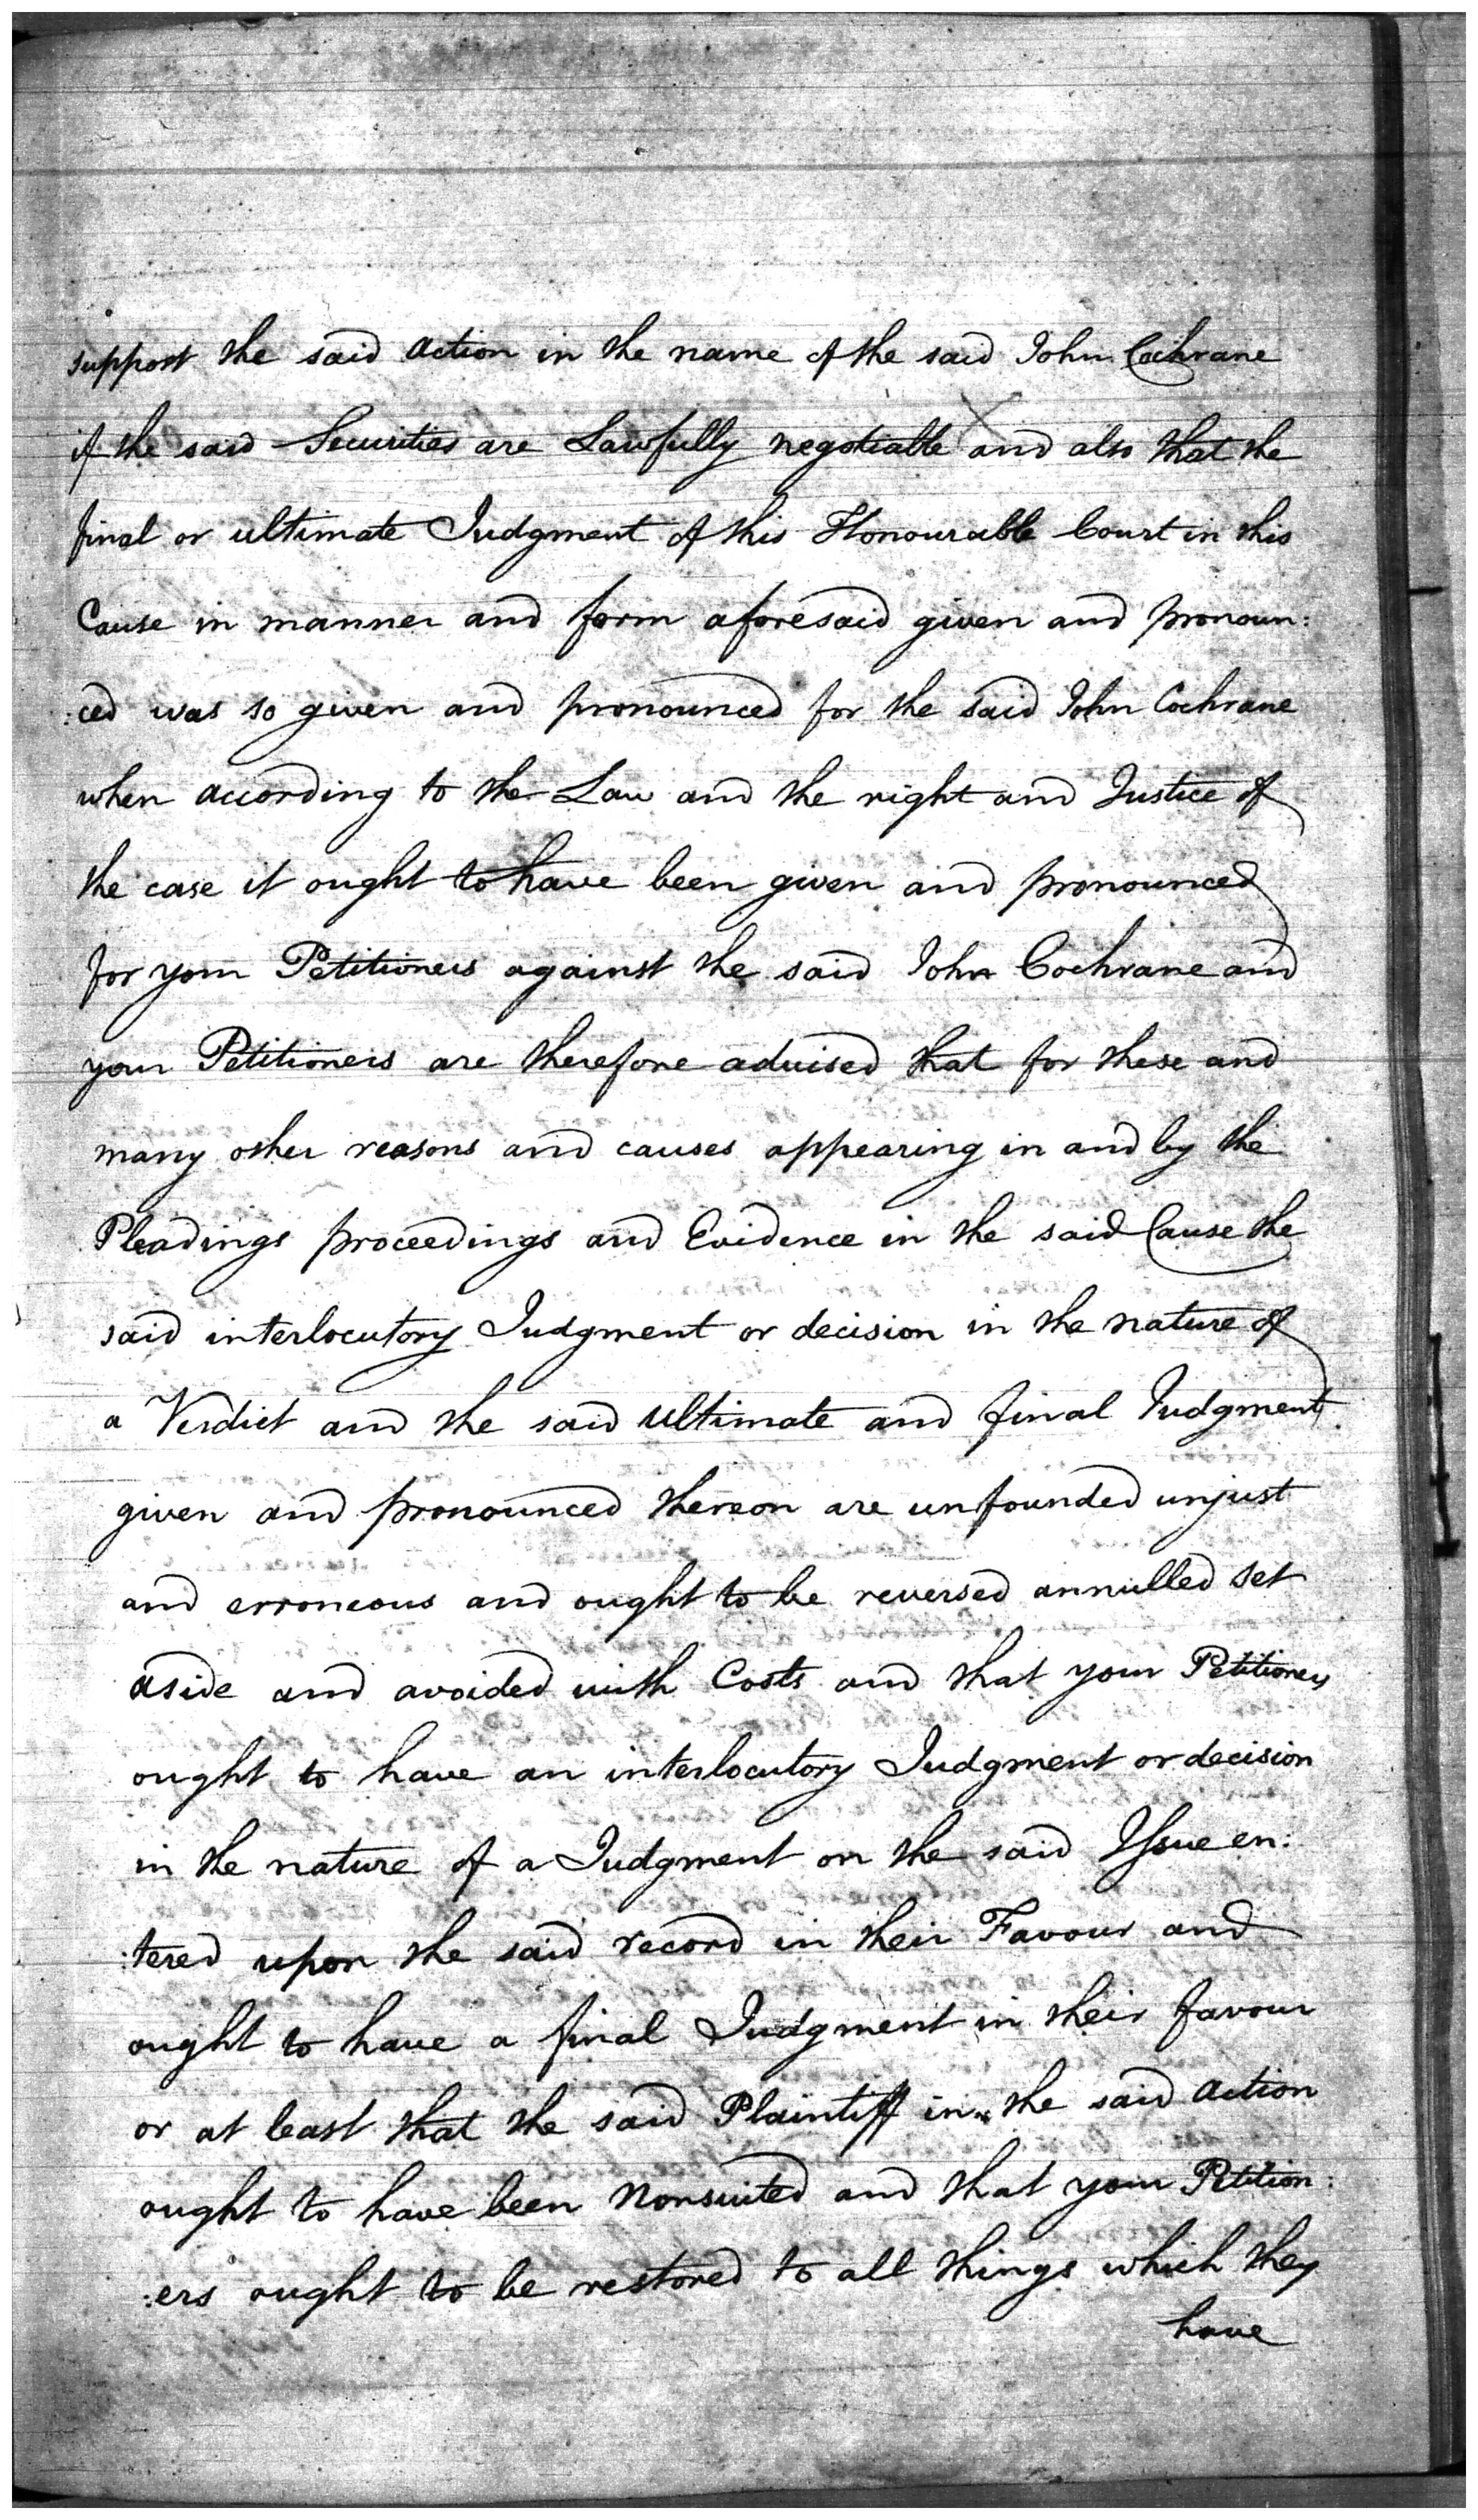 support the said action in the name of the said John Cochrane
if the said Securities are Lawfully negotiable and also that the
final or ultimate Judgment of this Honourable Court in this
Cause in manner and form aforesaid given and pronoun:
:ced was so given and pronounced for the said John Cochrane
when according to the Law and the right and Justice of
the case it ought to have been given and pronounced
for your Petitioners against the said John Cochrane and
your Petitioners are therefore advised that for these and
many other reasons and causes appearing in and by the
Pleadings proceedings and Evidence in the said Cause the
said interlocutory Judgment or decision in the nature of
a Verdict and the said ultimate and final Judgment
given and pronounced thereon are unfounded unjust
and erroneous and ought to be reversed annulled set
aside and avoided with Costs and that your Petitioners
ought to have an interlocutory Judgment or decision
in the nature of a Judgment on the said Issue en:
:tered upon the said record in their Favour and
ought to have a final Judgment in their favour
or at least that the said Plaintiff in the said action
ought to have been Nonsuited and that your Petition:
:ers ought to be restored to all things which they
have